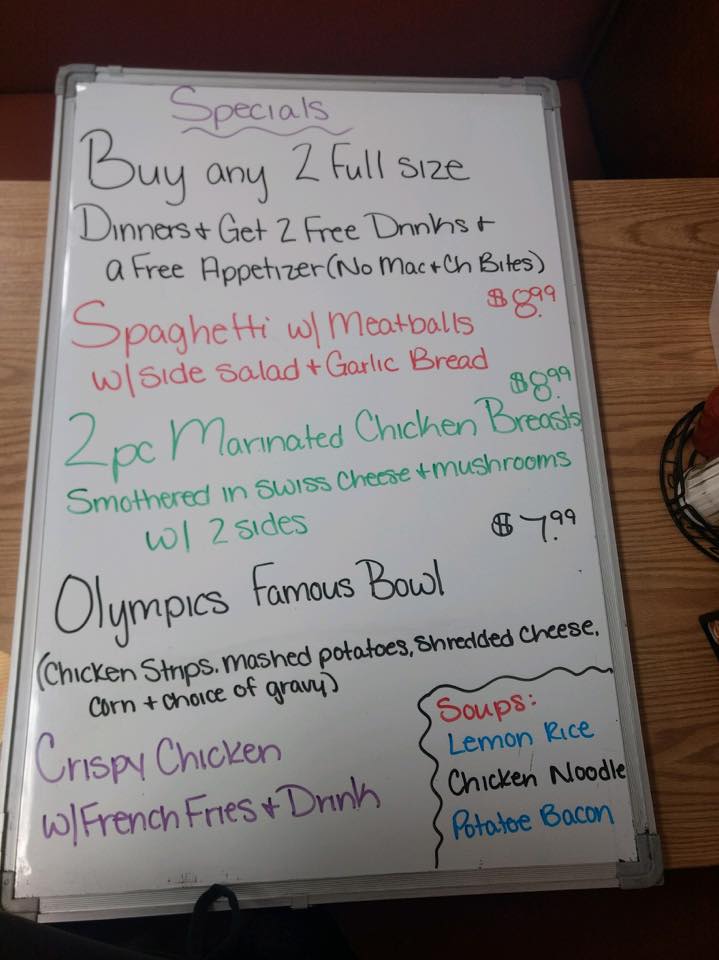 Specials
Buy any 2 Full size
Dinners + Get 2 Free Drinks +
a Free Appetizer (No Mac + Ch Bites)
$8.99
Spaghetti w/ Meatballs
w/ side salad + Garlic Bread
$8.99
2pc Marinated Chicken Breasts
Smothered in swiss cheese + mushrooms
w/ 2 sides
$7.99
Olympics Famous Bowl
(Chicken Strips. mashed potatoes, shredded cheese,
corn + choice of gravy)
Crispy Chicken
w/ French Fries + Drink
Soups:
Lemon Rice
Chicken Noodle
Potatoe Bacon